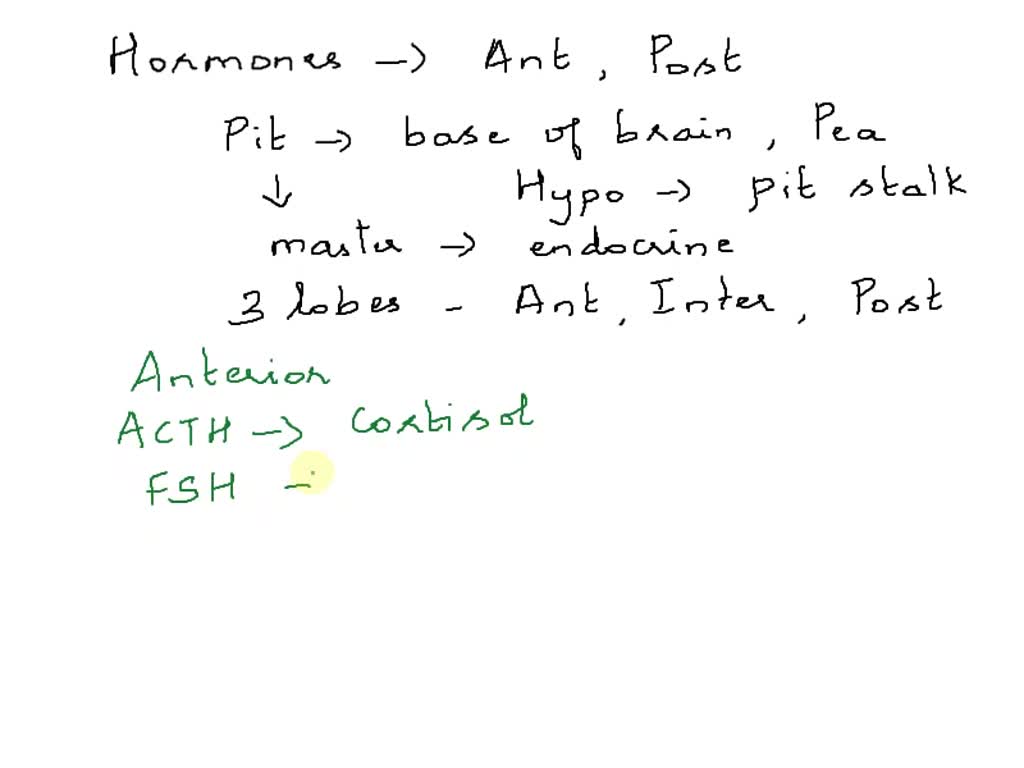 Hormones → Ant, Post
Pit → base of brain, Pea
↓ Hypo → pit stalk
master → endocrine
3 lobes - Ant, Inter, Post
Anterior
ACTH → Cortisol
FSH -